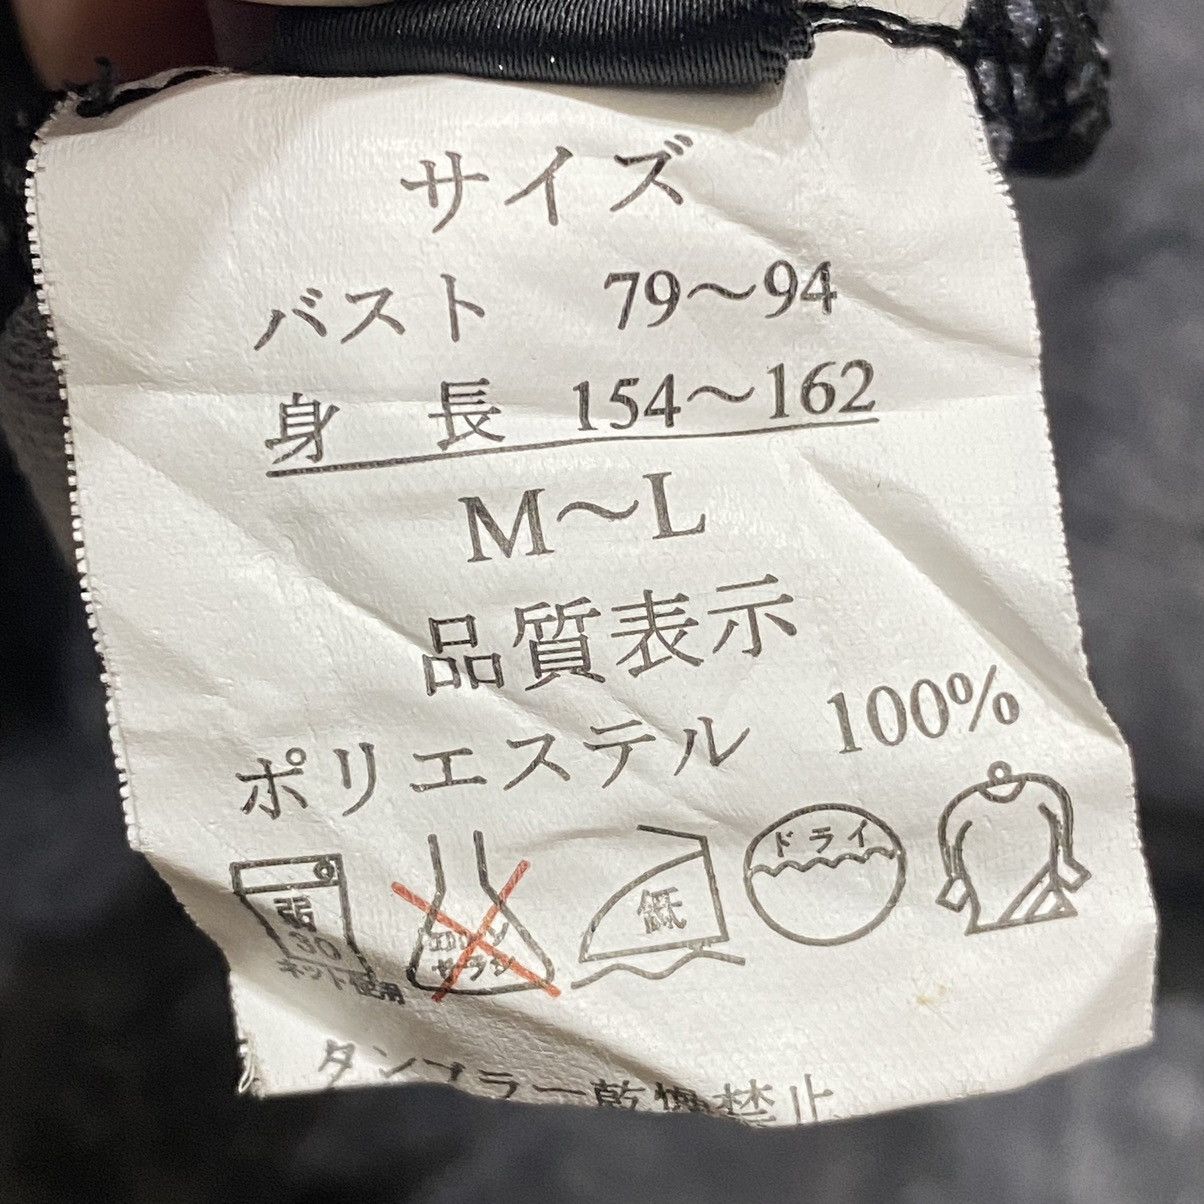 サイズ
バスト 79〜94
身 長 154〜162
M〜L
品質表示
ポリエステル 100%
弱
30
ネット使用
エンソ
サラシ
低
ドライ
タンブラー乾燥禁止